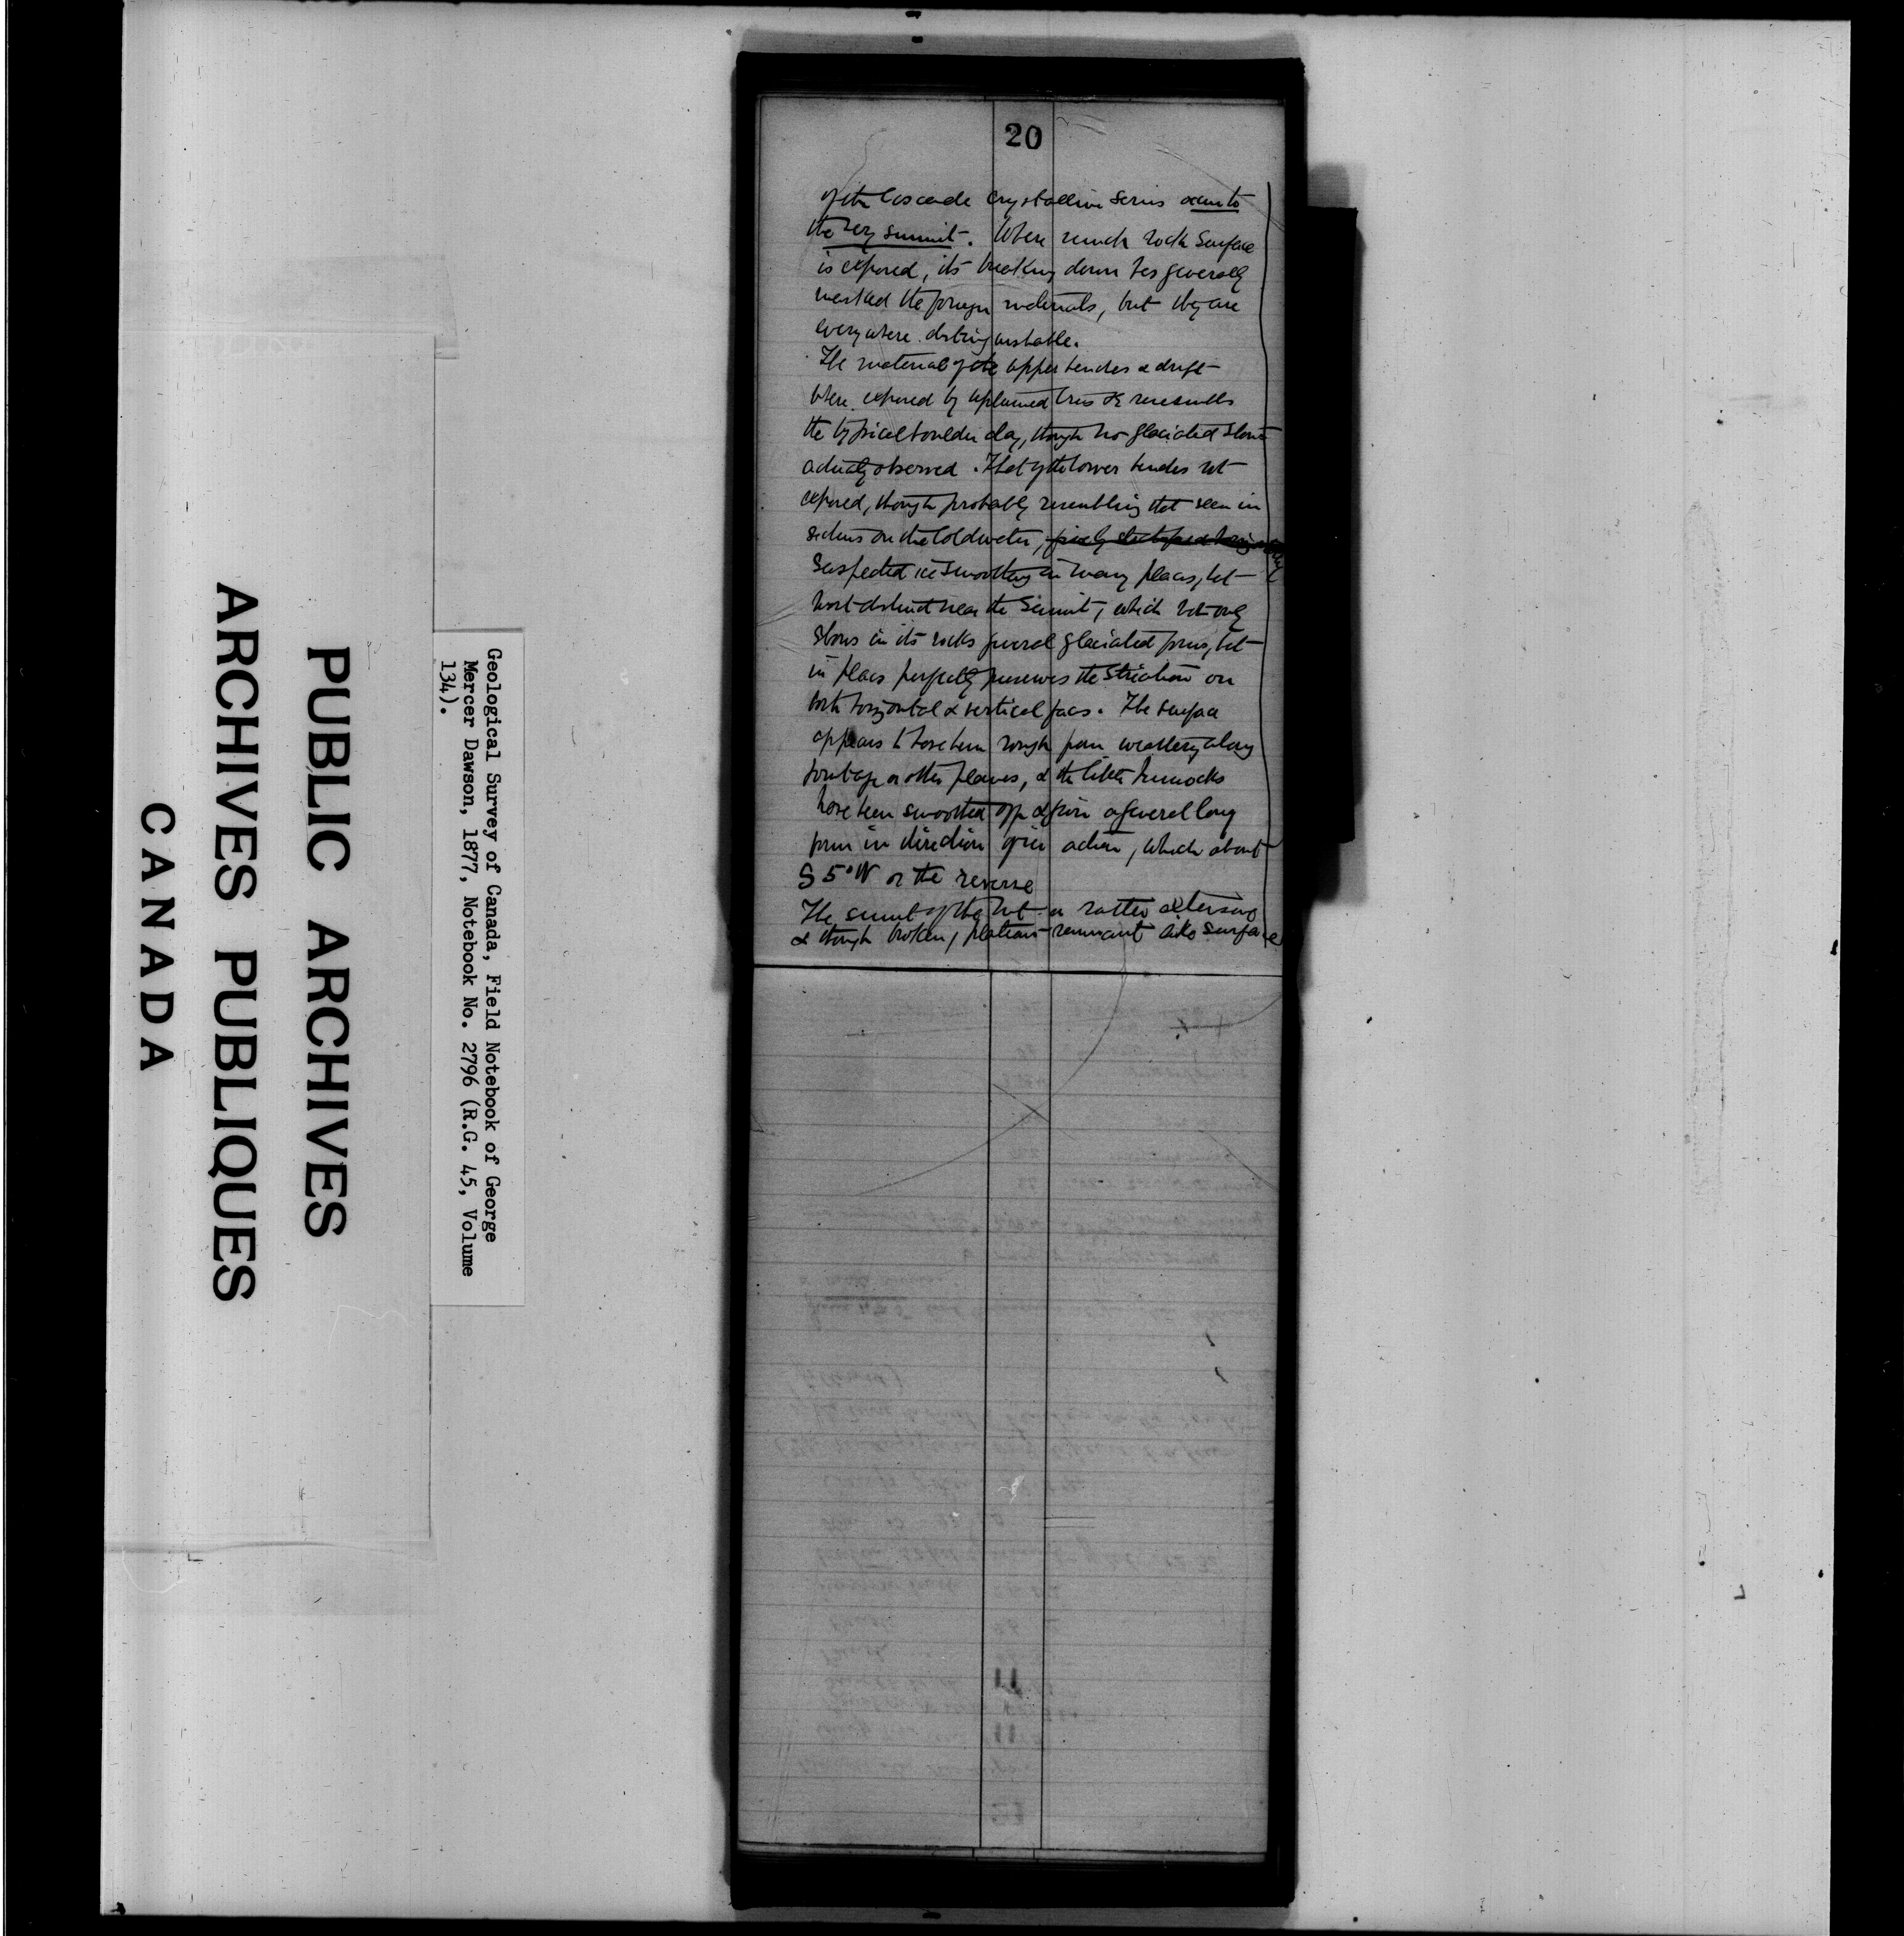 PUBLIC ARCHIVES
ARCHIVES PUBLIQUES
CANADA
Geological Survey of Canada, Field Notebook of George
Mercer Dawson, 1877, Notebook No. 2796 (R.G. 45, Volume
134).
20
of the Cascade Crystalline series occur to
the very summit. Where much rock surface
is exposed, its breaking down has generally
masked the foreign materials, but they are
everywhere distinguishable.
The material of the upper benches & drift
where exposed by upturned trees &c resembles
the typical boulder clay, though no glaciated stones
actually observed. That of the lower benches not
exposed, though probably resembling that seen in
sections on the Coldwater,
Suspected ice smoothing in many places, but
most distinct near the summit, which not only
shows in its rocks general glaciated forms, but
in places perfectly preserves the striation on
both horizontal & vertical faces. The surface
appears to have been rough from weathering along
jointage or other planes, & the little hummocks
have been smoothed off & given a general long
form in direction of ice action, which about
S 5° W or the reverse
The summit of the mt a rather extensive
& though broken, plateau remnant like surface
11
11